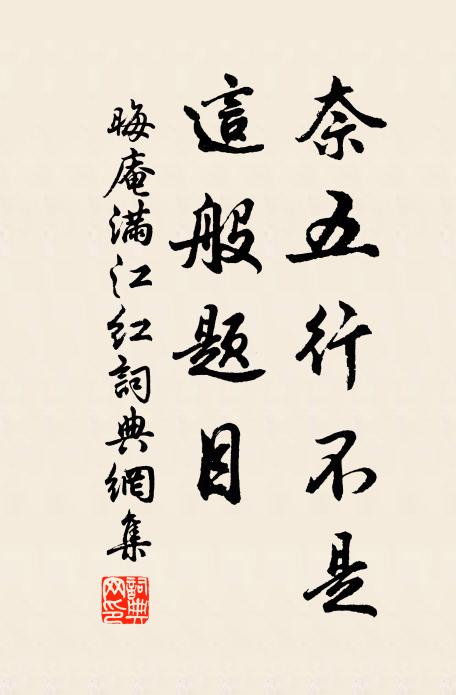 奈五行不是
這般題目
晦庵滿江红詞典網集
詞典网印